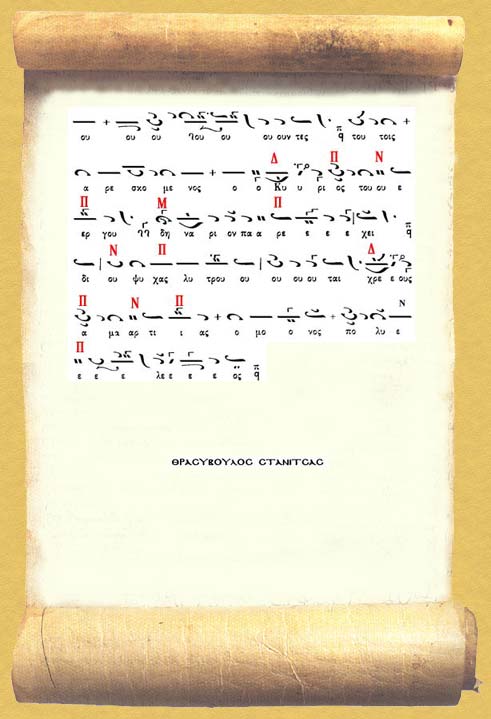 ου ου ου λου ου ου ουν τες π̈q του τοις
Δ Π Ν
α ρε σκο με νος ο ο Κυ υ ρι ος του ου ε
Π Μ Π
ερ γου δη να ρι ον πα α ρε ε ε ε χει q
Ν Π Δ
δι ου ψυ χας λυ τρου ου ου ου ται χρε ε ους
Π Ν Π Ν
α μα αρ τι ι ας ο μο ο νος πο λυ ε
Π
ε ε ε λε ε ε ε ος q
ΘΡΑCΥΒΟΥΛΟC CΤΑΝΙΤCΑC